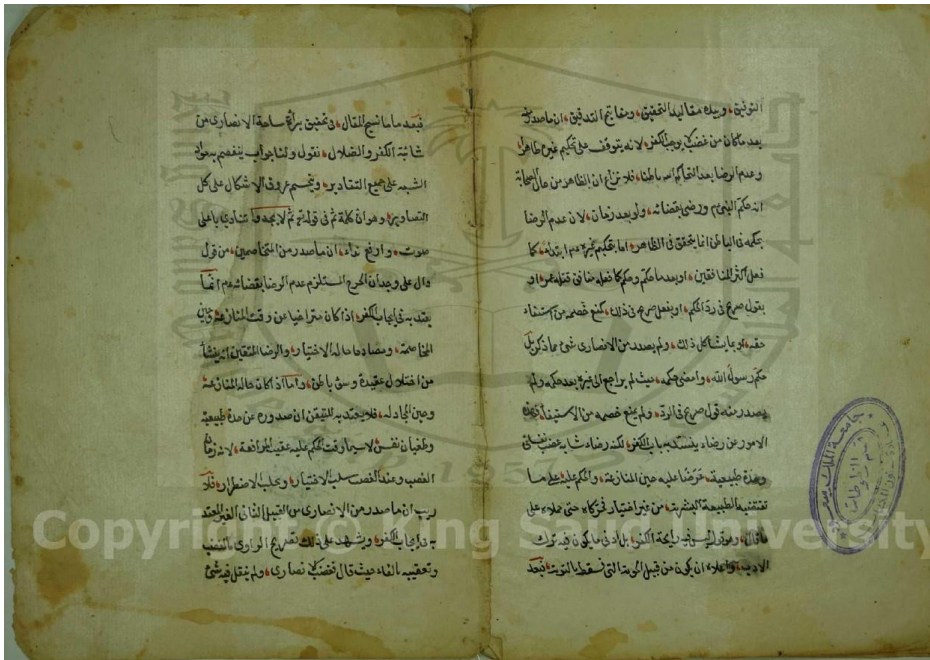 التوفيق وبيده مقاليد التحقيق ومفاتيح التدقيق ان ما صدر منه
بعد ما كان من غضب لا يوجب الكفر لانه يتوقف على تحكيم غيره ظاهرا
وعدم الرضا بعد التحاكم اليه باطنا فلا نزاع ان الظاهر من حال الصحابة
انه حكم النبي م ورضي بقضائه ولو بعد زمان لان عدم الرضا
بحكمه في الباطن انما يتحقق في الظاهر اما بتحكيم غيره عم ابتداء كما
فعل اكثر المنافقين او بعد ما حكم وحكم كما فعله في قتله عمر او
بقول صريح في رد الحكم او بفعل صريح في ذلك كمنع خصمه من استيفاء
حقه او ما يشاكل ذلك ولم يصدر من الانصاري شئ مما ذكر بل
حكم رسول الله وامضى حكمه حيث لم يراجع الى غيره بعد حكمه ولم
يصدر منه قول صريح في الرد ولم يمنع خصمه من الاستيفاء
الامور عن رضاء ينسد به باب الكفر لكنه رضاء شابه غضب نفسي
وحدة طبيعية عرضا عليه حين المنازعة والحكم عليه على ما
تقتضيه الطبيعة البشرية من غير اختيار حتى حملاه على
ما قال وهو ليس فيه رايحة الكفر بل ادنى ما يكون فيه ترك
الادب واعلاه ان يكون من قبيل الحوبة التي تسقط بالتوبة فبعد
فبعد ما نسج المقال في تحقيق براة ساحة الانصاري من
شائبة الكفر والضلال نقول ولنا جواب ينفصم به مواد
الشبه على جميع التقادير وينحسم عروق الاشكال على كل
التصاوير وهو ان كلمة ثم في قوله ثم لا يجدوا تنادي باعلى
صوت وارفع نداء ان ما صدر من المتخاصمين من قول
دال على وجدان الحرج المستلزم عدم الرضا بقضائه عم انما
يعتد به في ايجاب الكفر اذا كان متراخيا عن وقت المنازعة
المخاصمة ومصادفا حالة الاختيار والرضا المتقين انه ينشأ
من اختلال عقيدة وسوء باطن واما اذا كان حالة المنازعة
وحين المجادلة فلا يعتد به للتيقن ان صدوره عن حدة طبيعية
وطغيان نفس لا سيما وقت الحكم عليه عقيب المرافعة لانه زمان
الغضب وعند الغضب سلب الاختيار وجلب الاضطرار فلا
ريب ان ما صدر من الانصاري من القبيل الثاني الغير المعتد
به في ايجاب الكفر ويشهد على ذلك تصريح الراوي بالغضب
وتعقيبه بالفاء حيث قال فغضب الانصاري ولم ينقل فيه شئ
جامعة الملك سعود
قسم المخطوطات
1957
Copyright © King Saud University